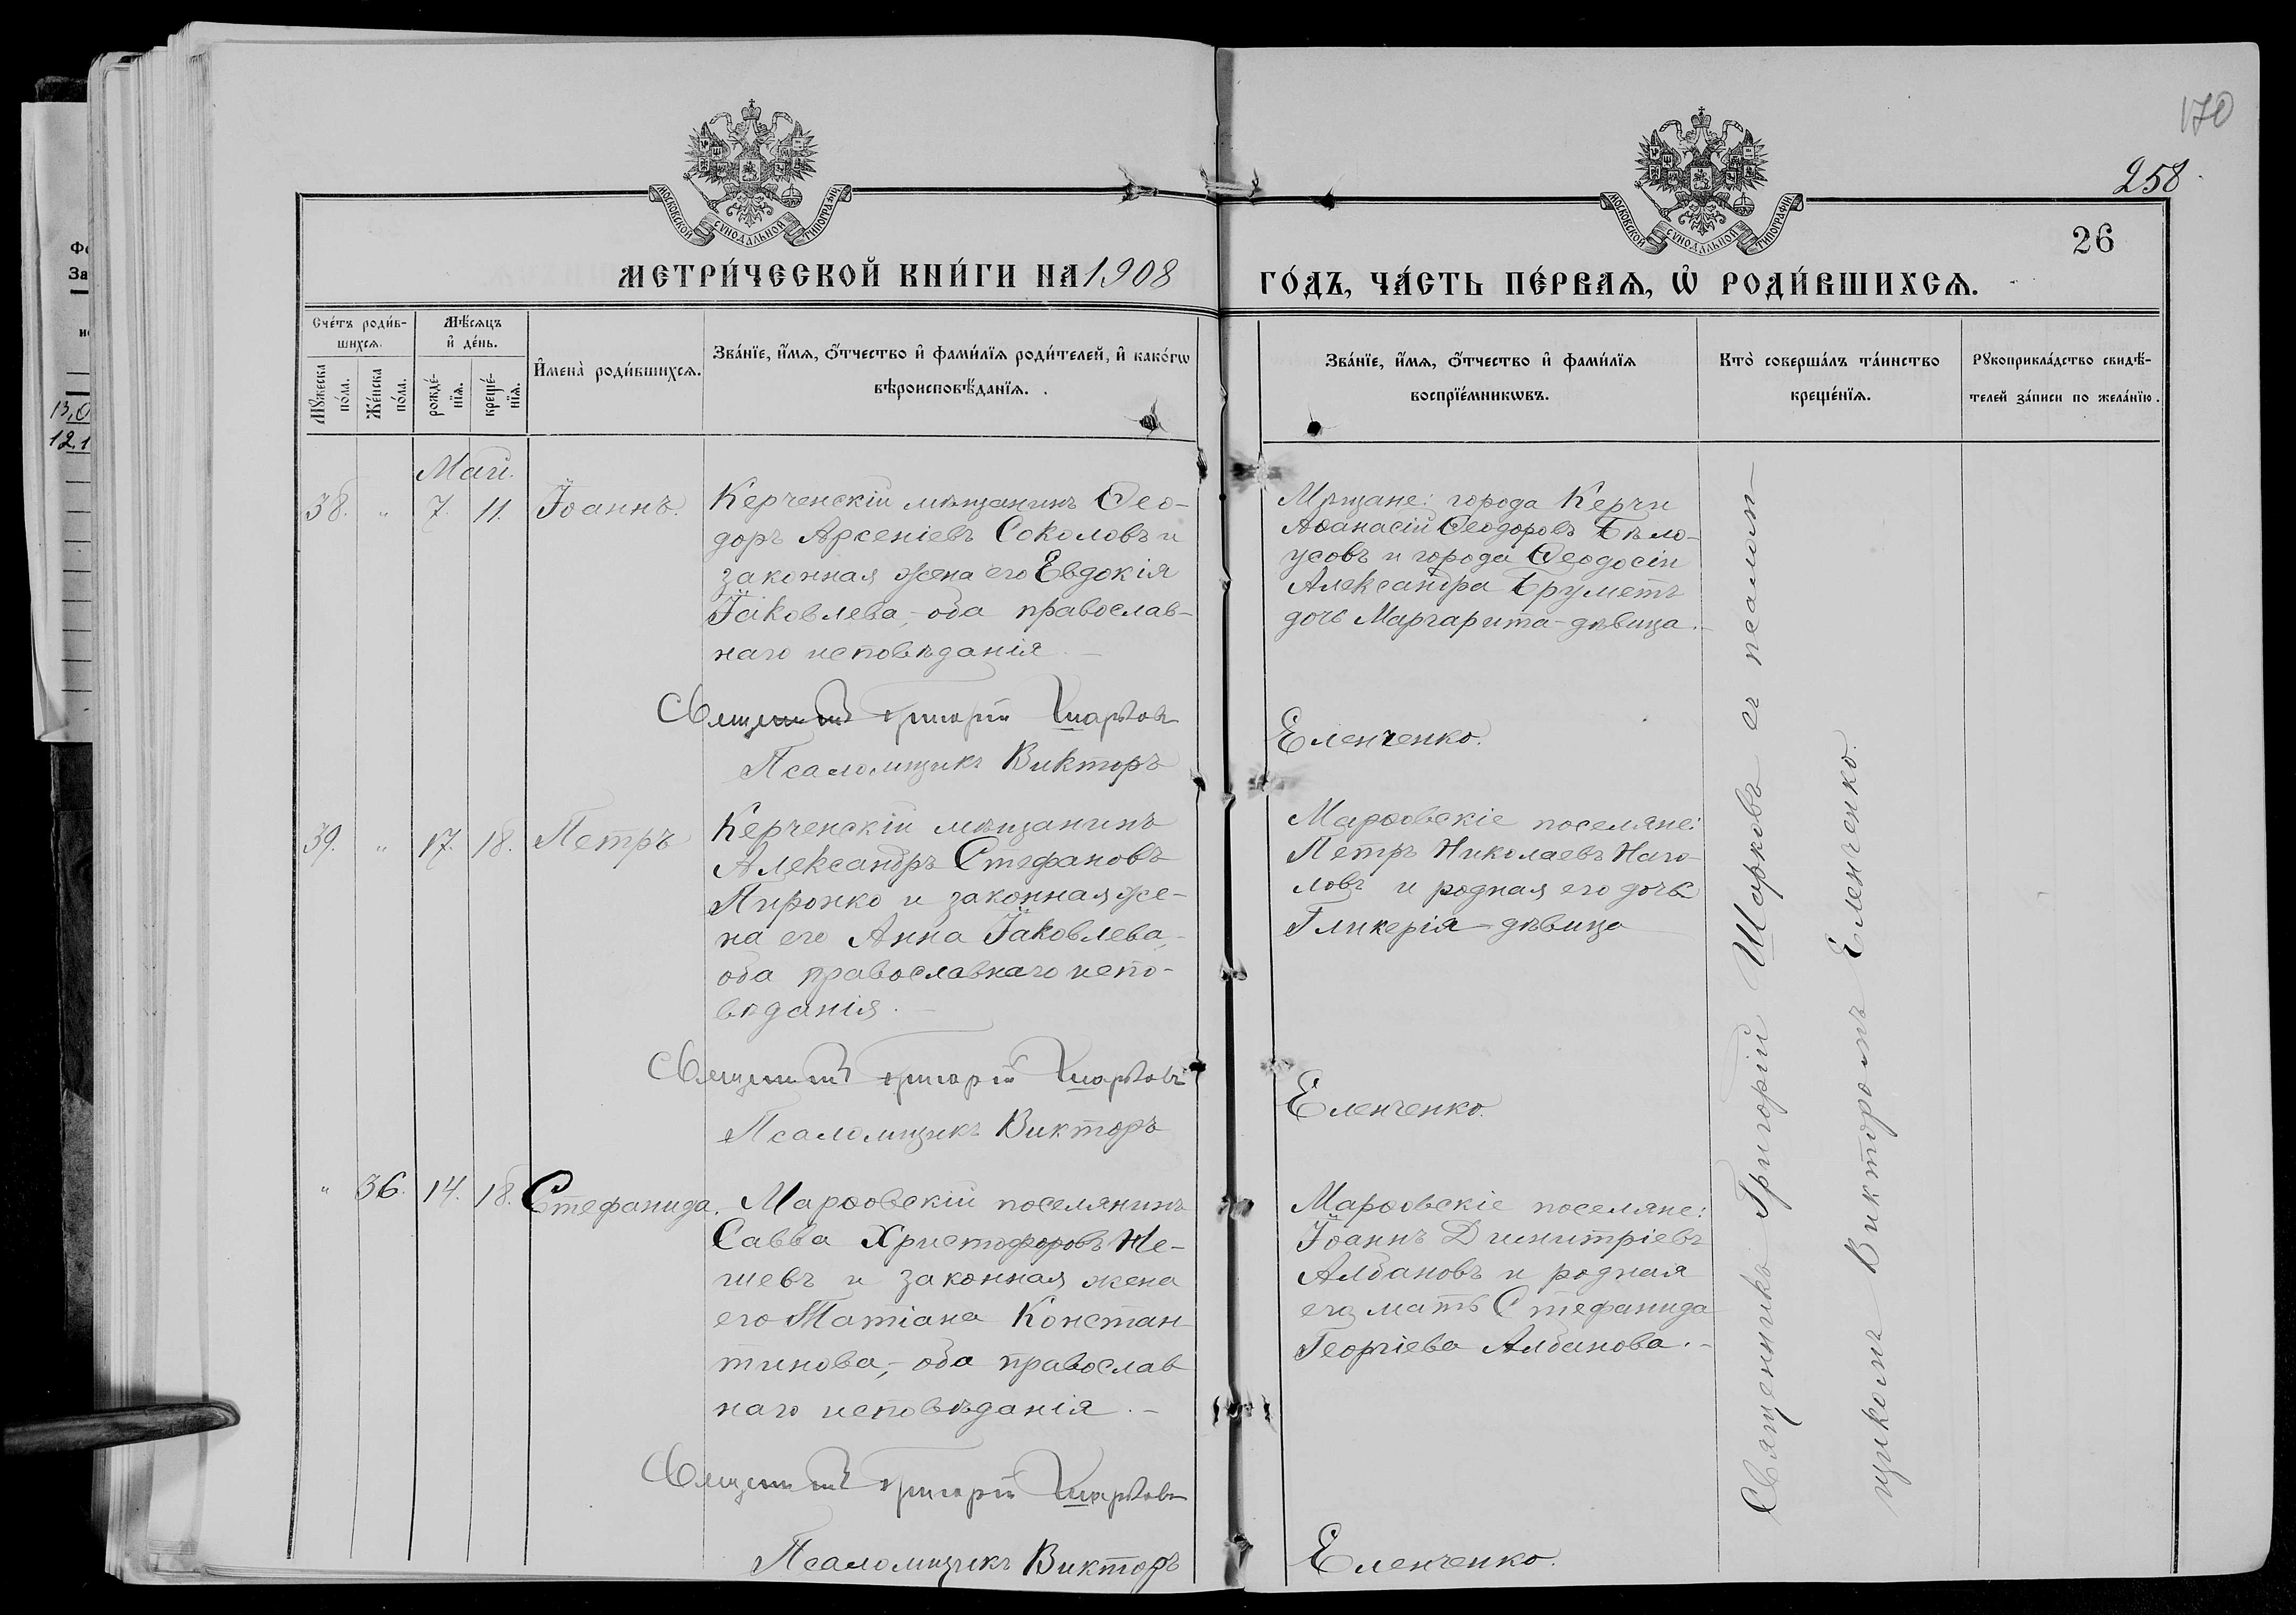 170
258
26
МОСКОВСКОЙ СѴНОДАЛЬНОЙ ТИПОГРАФІИ
МОСКОВСКОЙ СѴНОДАЛЬНОЙ ТИПОГРАФІИ
МЕТРИ́ЧЕСКОЙ КНИ́ГИ НА 1908
ГО́ДЪ, ЧА́СТЬ ПЕ́РВАѦ, Ѽ РОДИ́ВШИХСѦ.
Сче́тъ роди́в-
шихсѧ.
Мꙋжеска
по́ла.
Же́нска
по́ла.
Мѣ́сѧцъ
и҆ де́нь.
рожде́-
нїѧ.
креще́-
нїѧ.
И҆мена̀ роди́вшихсѧ.
Зва́нїе, и҆́мѧ, ѻ҆́тчество и҆ фами́лїѧ роди́телей, и҆ како́гѡ
вѣроисповѣ́данїѧ.
Зва́нїе, и҆́мѧ, ѻ҆́тчество и҆ фами́лїѧ
воспрїе́мникѡвъ.
Кто̀ соверша́лъ та́инство
креще́нїѧ.
Рꙋкоприкла́дство свидѣ́-
телей за́писи по жела́нїю.
Май.
38. " 7. 11. Іоаннъ.
Керченскій мѣщанинъ Ѳео-
доръ Арсеніевъ Соколовъ и
законная жена его Евдокія
Іаковлева,- оба православ-
наго исповѣданія. -
Священникъ Григорій Шарковъ
Псаломщикъ Викторъ
Мѣщане: города Керчи
Аѳанасій Ѳеодоровъ Бѣло-
усовъ и города Ѳеодосіи
Александра Бруметъ
дочь Маргарита - дѣвица. -
Еленченко.
39. " 17. 18. Петръ
Керченскій мѣщанинъ
Александръ Стефановъ
Пиронко и законная же-
на его Анна Іаковлева,-
оба православнаго испо-
вѣданія. -
Священникъ Григорій Шарковъ
Псаломщикъ Викторъ
Марѳовскіе поселяне:
Петръ Николаевъ Наго-
ловъ и родная его дочь
Гликерія - дѣвица
Еленченко.
" 36. 14. 18. Стефанида.
Марѳовскій поселянинъ
Савва Христофоровъ Не-
шевъ и законная жена
его Татіана Констан-
тинова,- оба православ
наго исповѣданія. -
Священникъ Григорій Шарковъ
Псаломщикъ Викторъ
Марѳовскіе поселяне:
Іоаннъ Димитріевъ
Албановъ и родная
его мать Стефанида
Георгіева Албанова. -
Еленченко.
Священникъ Григорій Шарковъ съ псалом-
щикомъ Викторомъ Еленченко.